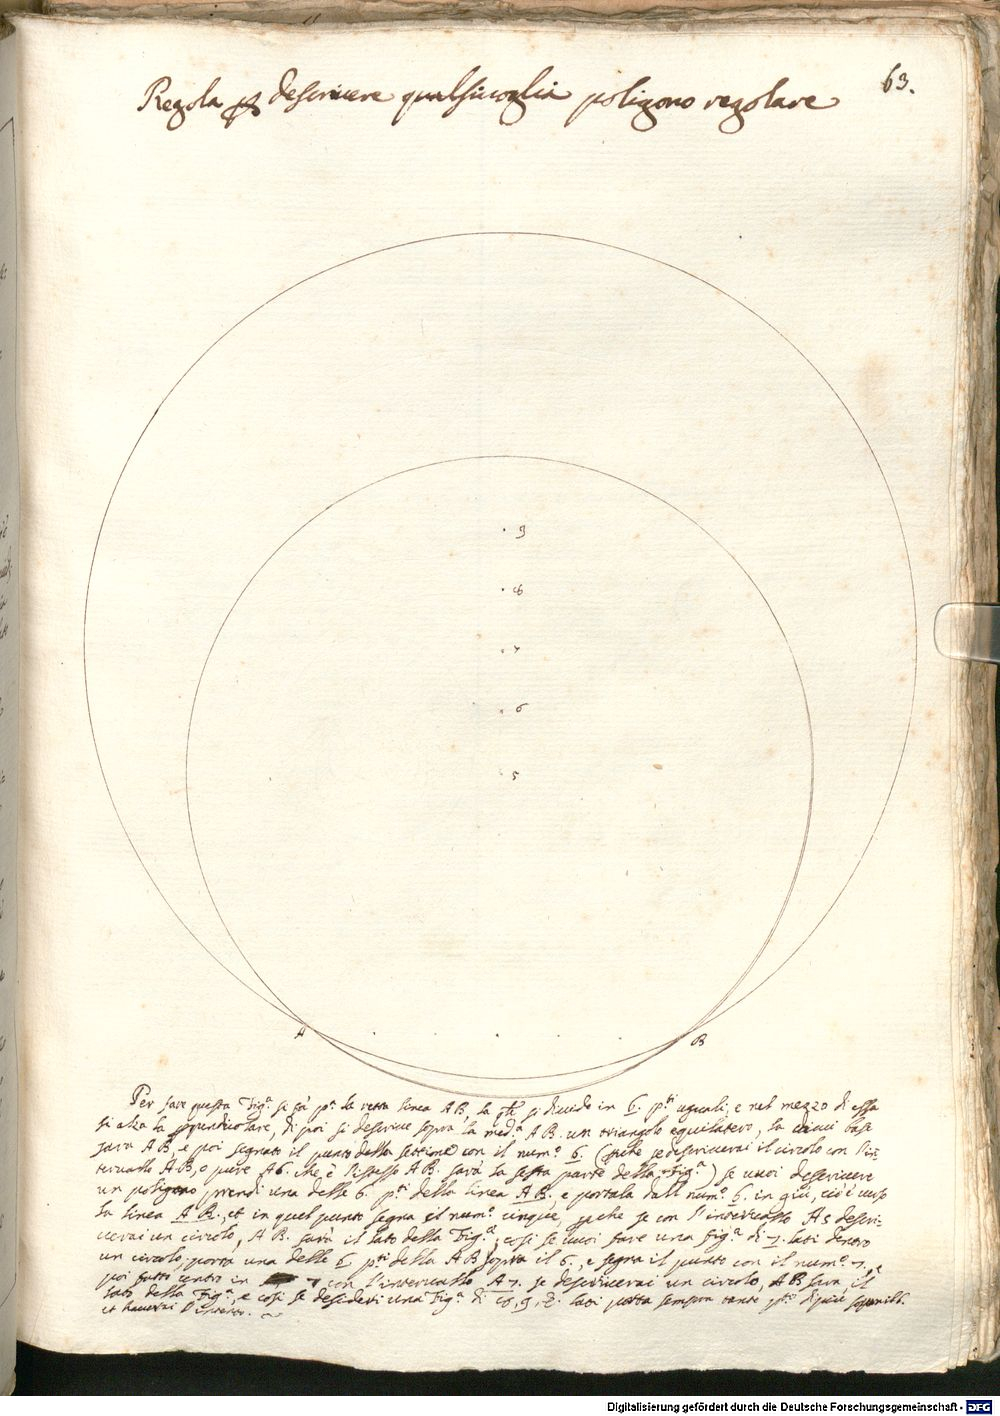 63.
Regola p descrivere qualsivoglia poligono regolare
9
8
7
6
5
A
B
Per fare questa Fig.ª si fà p.ª la retta linea AB, la q̃le si divide in 6. p.ti uguali, e nel mezzo di essa
si alza la ppendicolare, di poi si descrive sopra la med.ª AB. un triangolo equilatero, la cui base
sarà AB, e poi segnato il punto della settione con il num.º 6. (pche se descriverai il circolo con l'in-
tervallo AB, o pure A6. che è l'istesso AB. sarà la sesta parte della Fig.ª) se vuoi descrivere
un poligono prendi una delle 6. p.ti della linea AB. e portala dall num.º 6. in giù, cioè verso
la linea AB., et in quel punto segna il num.º cinque, pche se con l'intervallo A5 descri-
verai un circolo, AB. sarà il lato della Fig.ª, così se vuoi fare una fig.ª di 7. lati dentro
un circolo, porta una delle 6. p.ti della AB sopra il 6., e segna il punto con il num.º 7., e
poi fatto centro in 7 con l'intervallo A7. se descriverai un circolo, AB sarà il
lato della Fig.ª, e così se desideri una Fig.ª di 8, 9, lati porta sempre tante p.ti di più
et haverai l'intento.
Digitalisierung gefördert durch die Deutsche Forschungsgemeinschaft - DFG